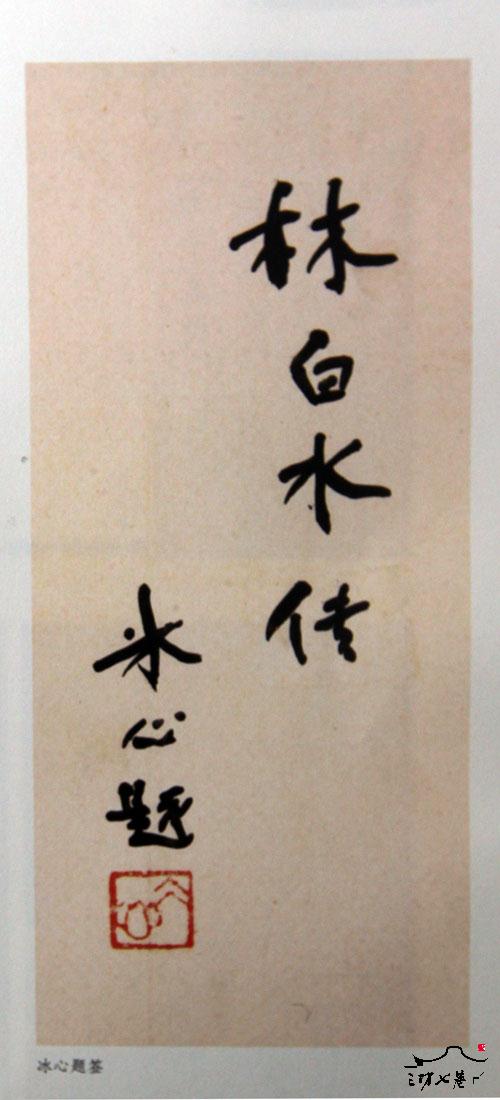 林白水传
冰心题
冰心题签
三坊七巷